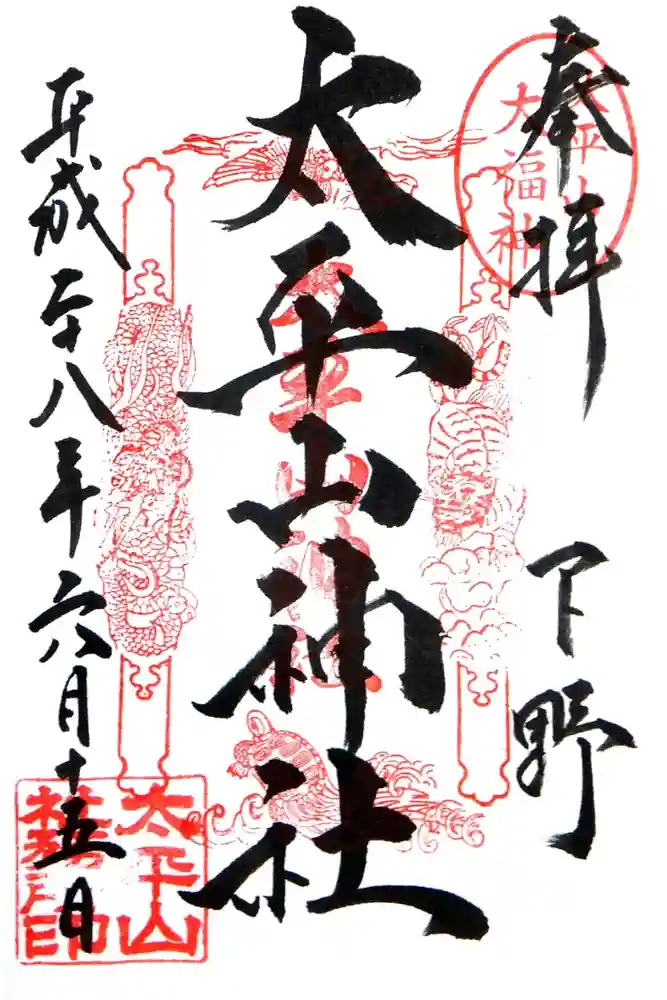 奉拝
下野
太平山
大福神
太平山神社
太平山神社
平成二十八年六月十五日
太平山
社務所印